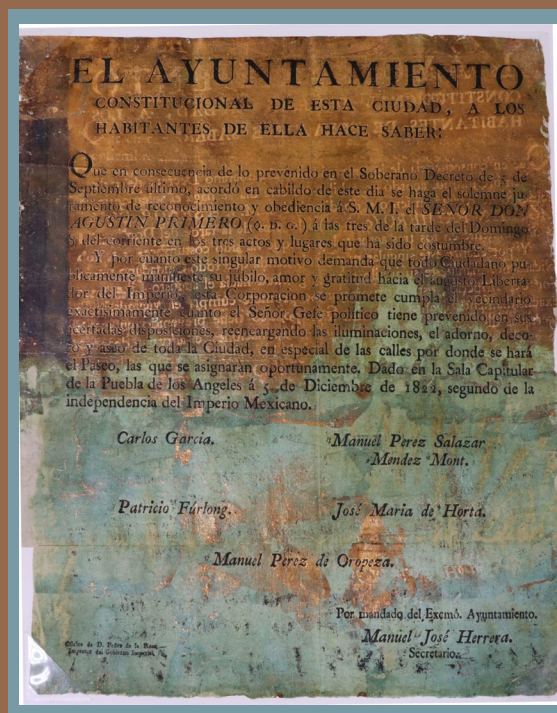 EL AYUNTAMIENTO
CONSTITUCIONAL DE ESTA CIUDAD, A LOS
HABITANTES DE ELLA HACE SABER:
Que en consecuencia de lo prevenido en el Soberano Decreto de 5 de
Septiembre último, acordó en cabildo de este dia se haga el solemne ju-
ramento de reconocimiento y obediencia á S. M. I. el SEÑOR DON
AGUSTIN PRIMERO (Q. D. G.) á las tres de la tarde del Domingo
8 del corriente en los tres actos y lugares que ha sido costumbre.
Y por cuanto este singular motivo demanda que todo Ciudadano pu-
blicamente manifieste su jubilo, amor y gratitud hácia el augusto Liberta-
dor del Imperio, esta Corporacion se promete cumpla el vecindario
exactisimamente cuanto el Señor Gefe político tiene prevenido en sus
acertadas disposiciones, reencargando las iluminaciones, el adorno, deco-
ro y aseo de toda la Ciudad, en especial de las calles por donde se hará
el Paseo, las que se asignarán oportunamente. Dado en la Sala Capitular
de la Puebla de los Angeles á 5 de Diciembre de 1822, segundo de la
independencia del Imperio Mexicano.
Carlos Garcia. Manuel Perez Salazar
Mendez Mont.
Patricio Fúrlong. José Maria de Horta.
Manuel Pérez de Oropeza.
Por mandado del Exemô. Ayuntamiento.
Manuel José Herrera.
Secretario.
Oficina de D. Pedro de la Rosa,
Impresor del Gobierno Imperial.